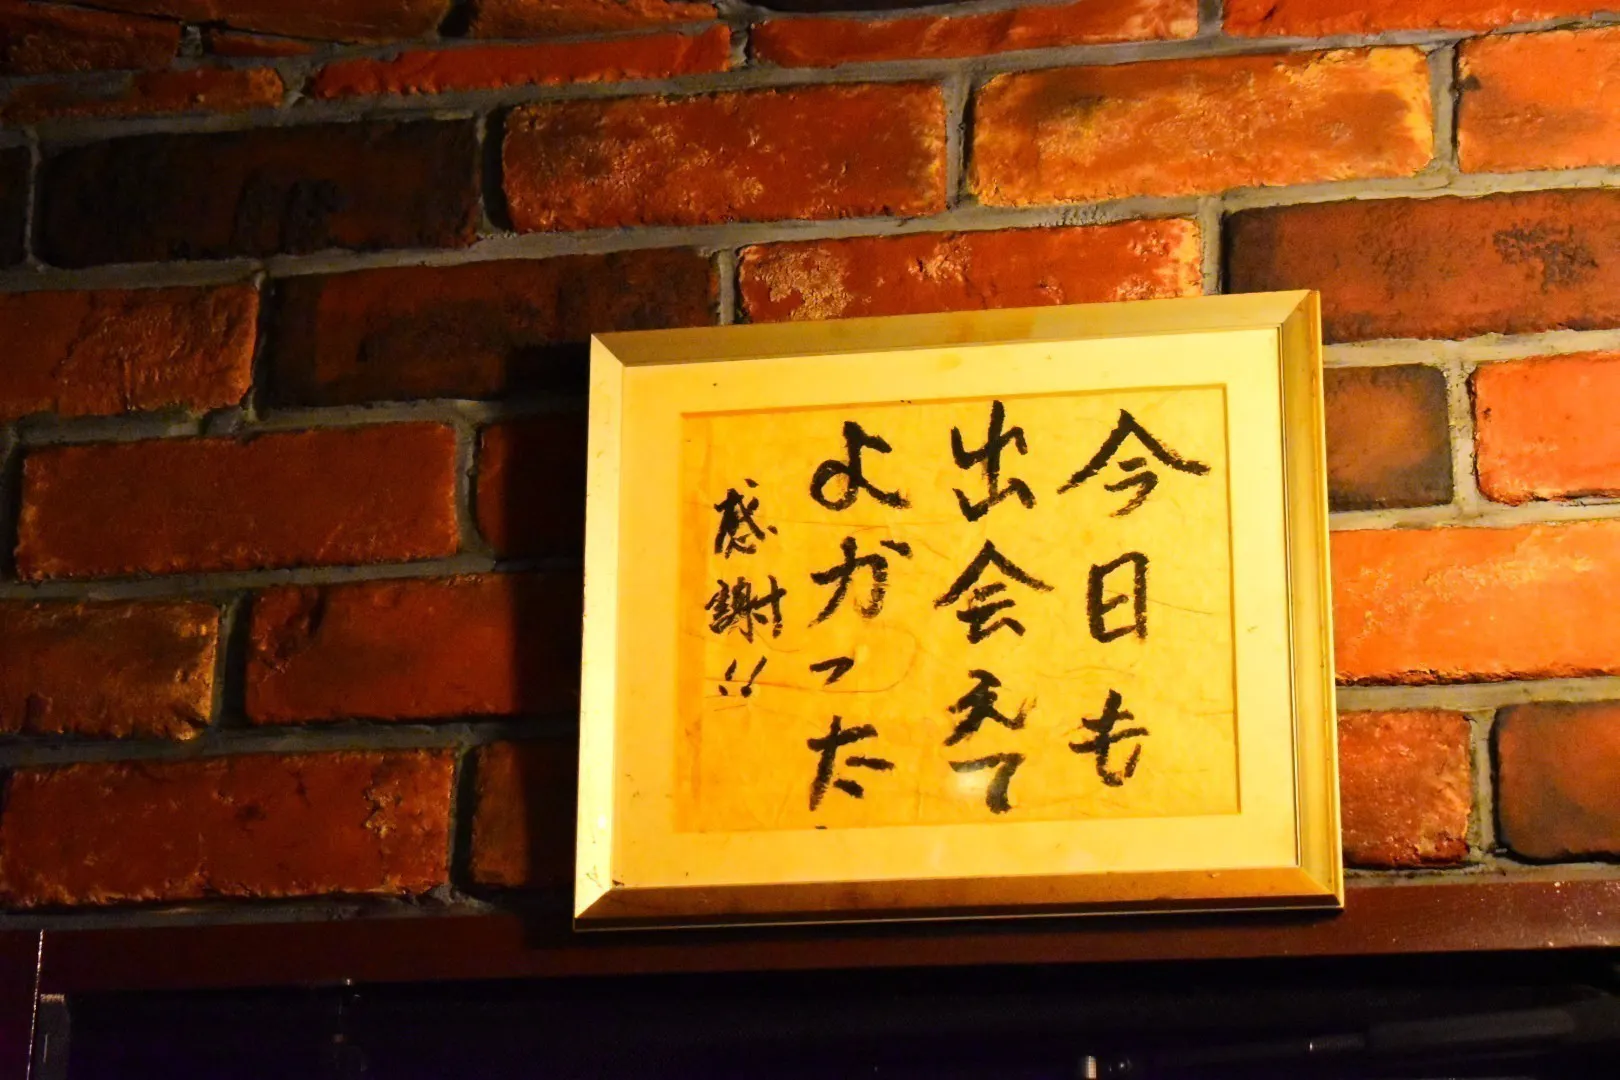 今日も
出会えて
よかった
感謝!!